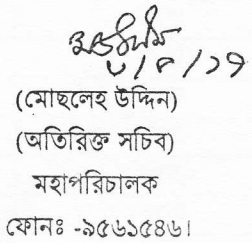 ৮/৪/১৭
(মোছলেহ উদ্দিন)
(অতিরিক্ত সচিব)
মহাপরিচালক
ফোনঃ -৯৫৬১৫৪৬।